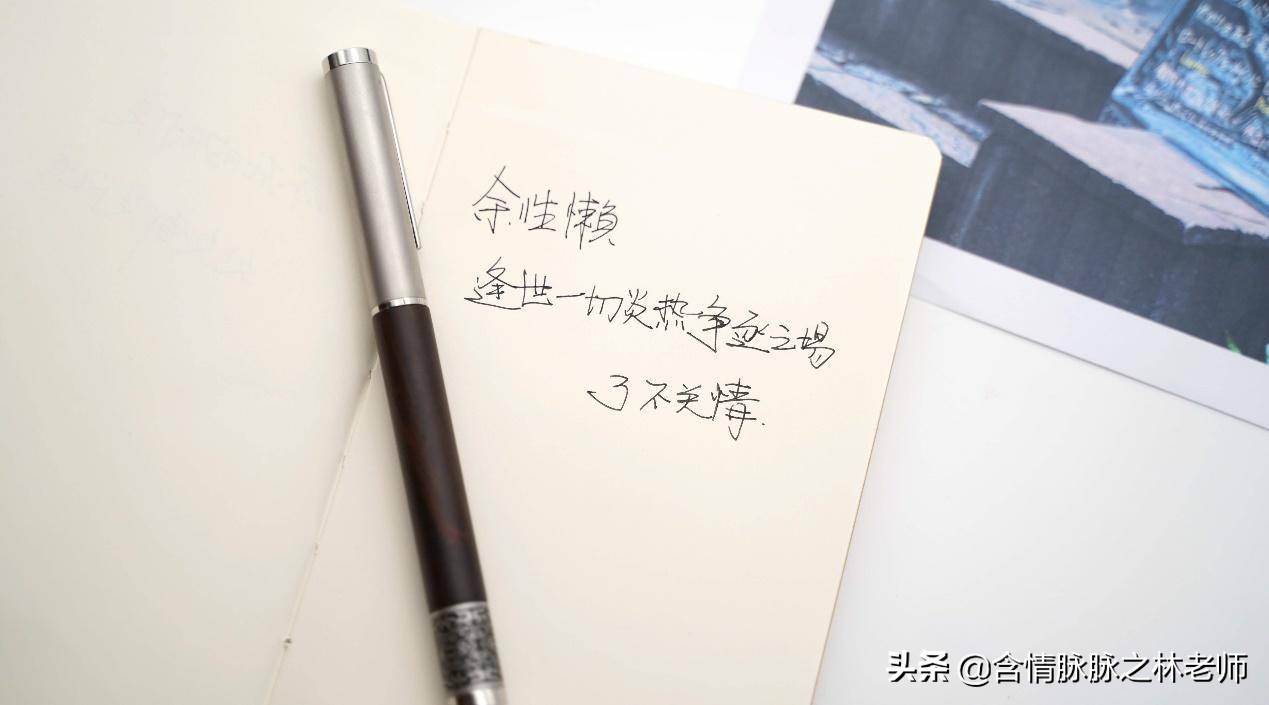 余性懒
逢世一切炎热争逐之場
了不关情.
头条 @含情脉脉之林老师